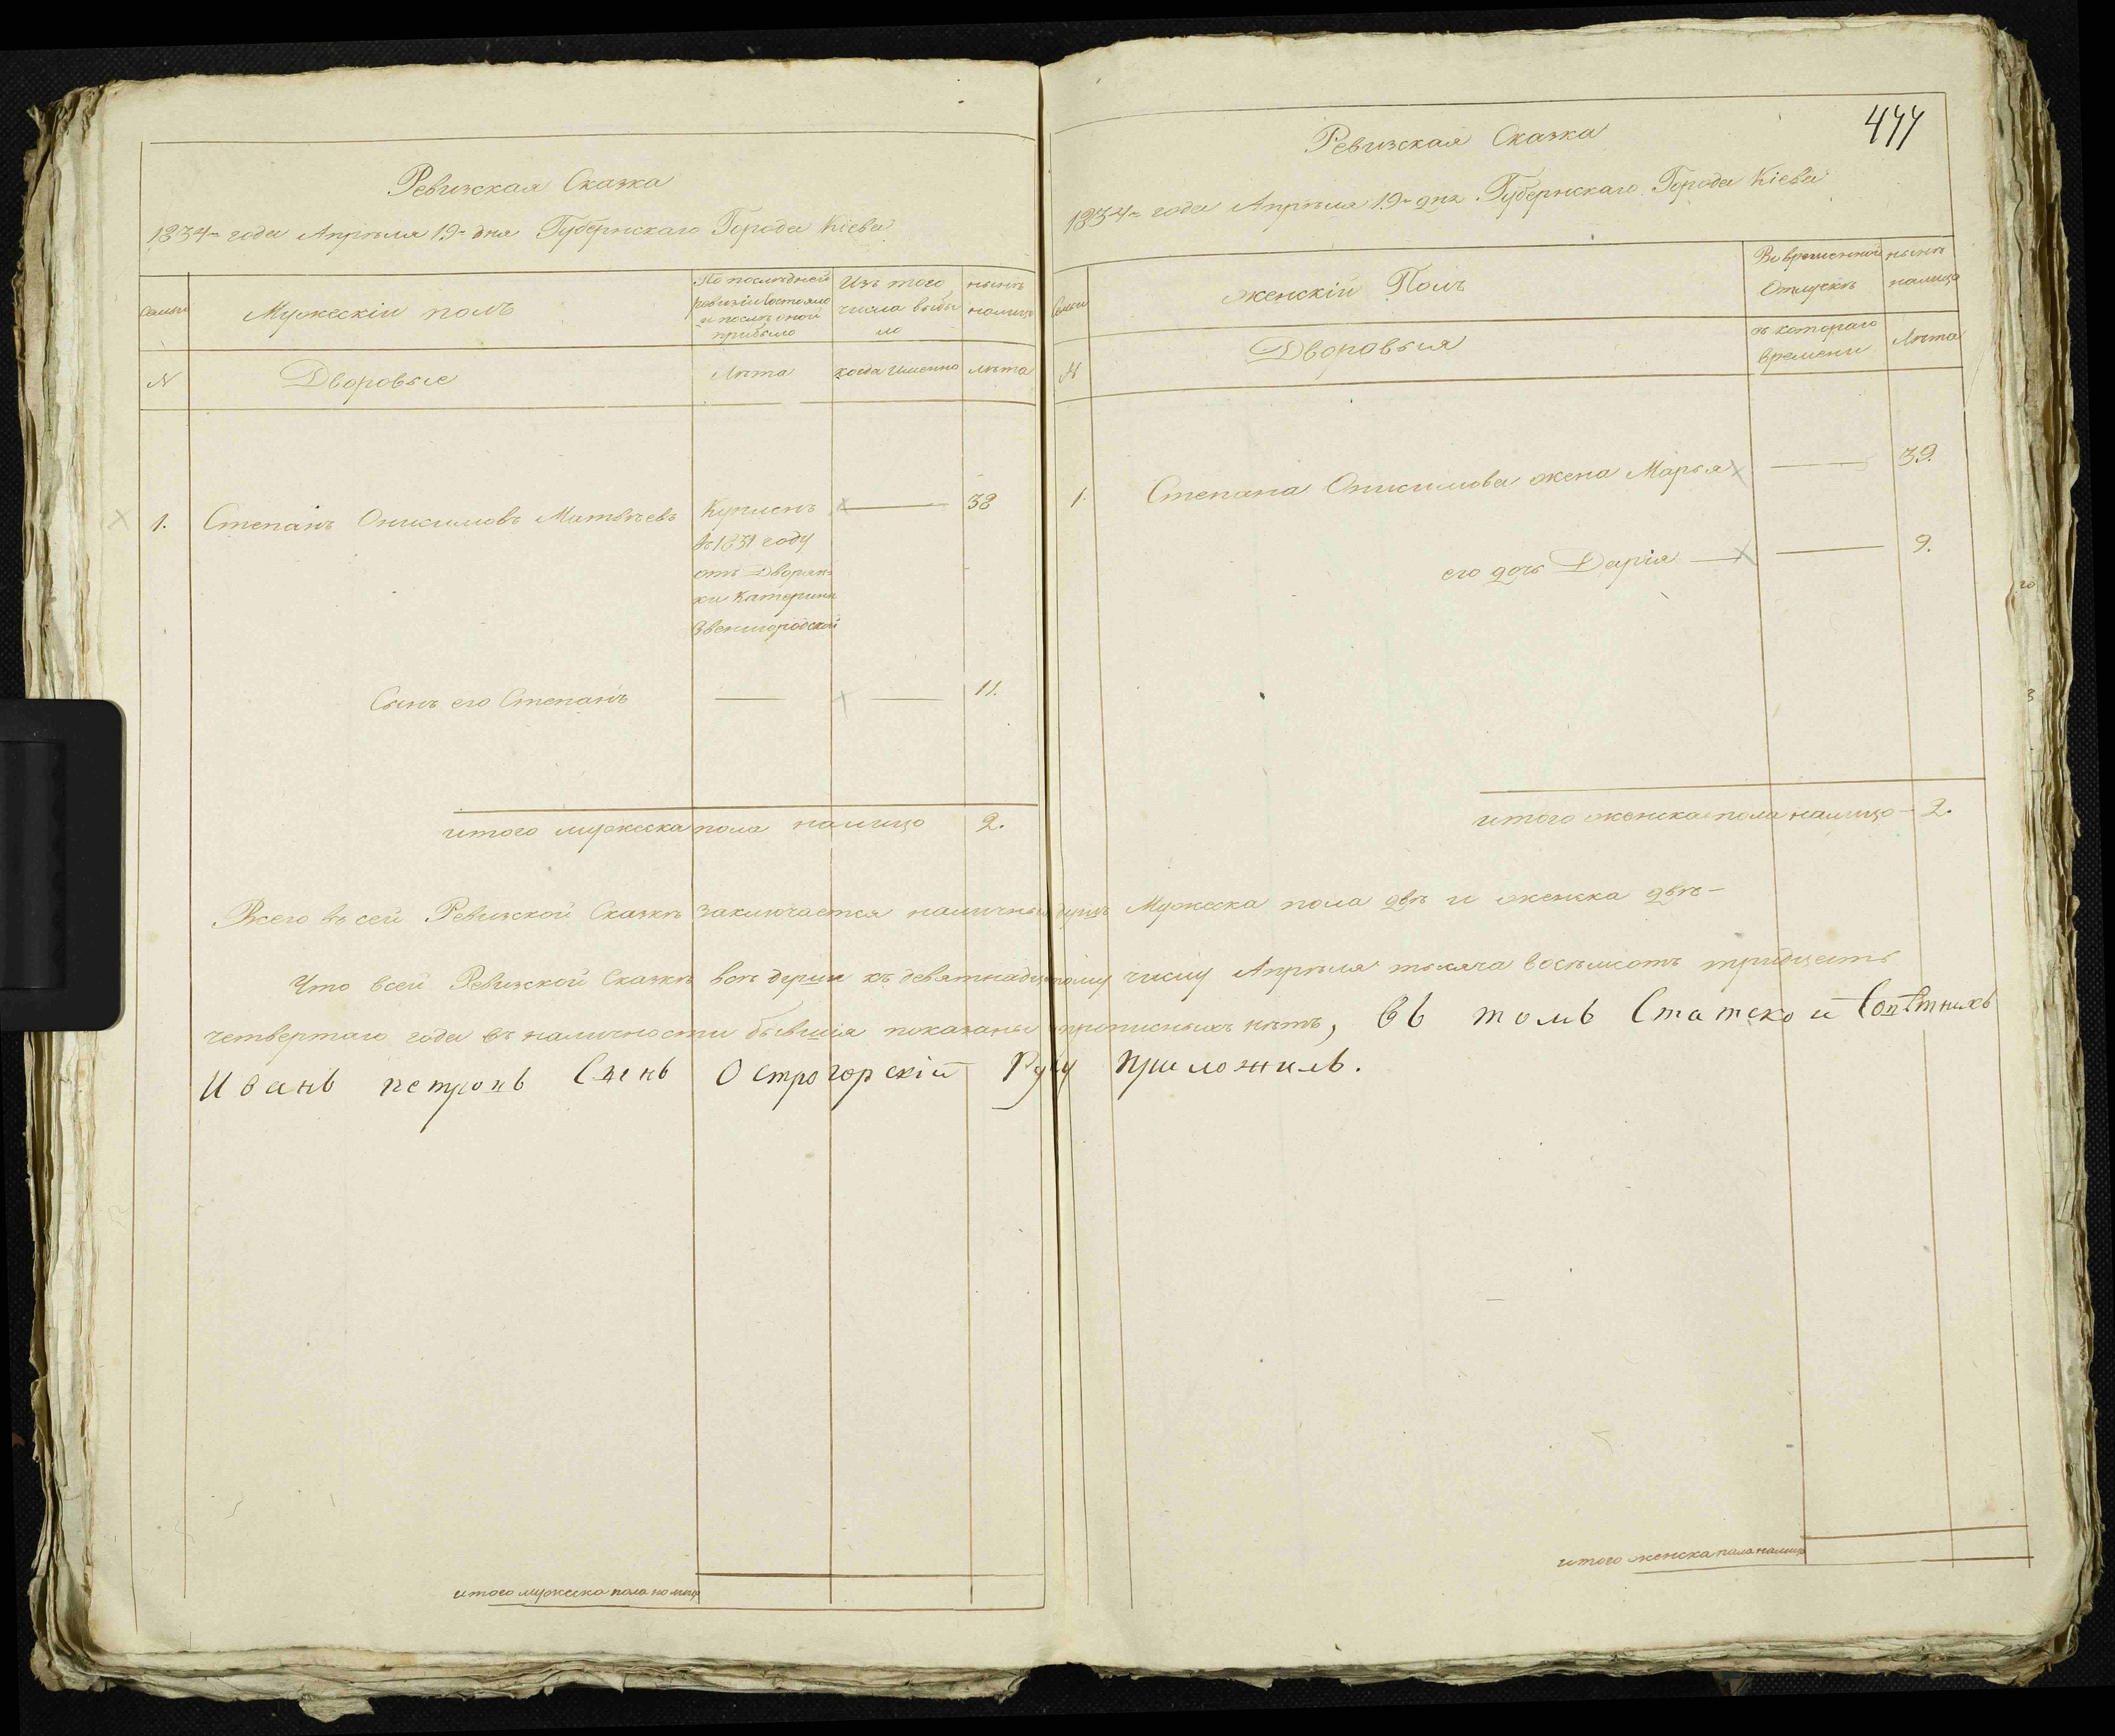 Ревизская Сказка
1834 года Апрѣля 19 дня Губернскаго Города Кіева
Семьи
Мужескій полъ
По послѣдней ревизіи состояло и послѣ оной прибыло
Изъ того числа выбыло
нынѣ налицо
N
Дворовые
Лѣта
когда именно
лѣта
1. Степанъ Онисимовъ Матвѣевъ
Купленъ
въ 1831 году
отъ Дворян-
ки Катерины
Звенигородской
38
Сынъ его Степанъ
11.
итого мужеска пола налицо 2.
итого мужеска пола налицо
477
Ревизская Сказка
1834 года Апрѣля 19 дня Губернскаго Города Кіева
Семьи
женскій Полъ
Во временной Отлучкѣ
нынѣ налицо
N
Дворовыя
съ котораго времени
Лѣта
1. Степана Онисимова жена Марья 39.
его дочь Дарія 9.
итого женска пола налицо 2.
Всего въ сей Ревизской Сказкѣ заключается наличныхъ душъ Мужеска пола двѣ и женска двѣ
Что всей Ревизской Сказкѣ всѣ души къ девятнадцатому числу Апрѣля тысяча восемсотъ тридцеть
четвертаго года въ наличности бывшія показаны прописныхъ нѣтъ, въ томъ Статской Совѣтникъ
Иванъ петровъ Сынъ Острогорскій Руку приложилъ.
итого женска пола налицо